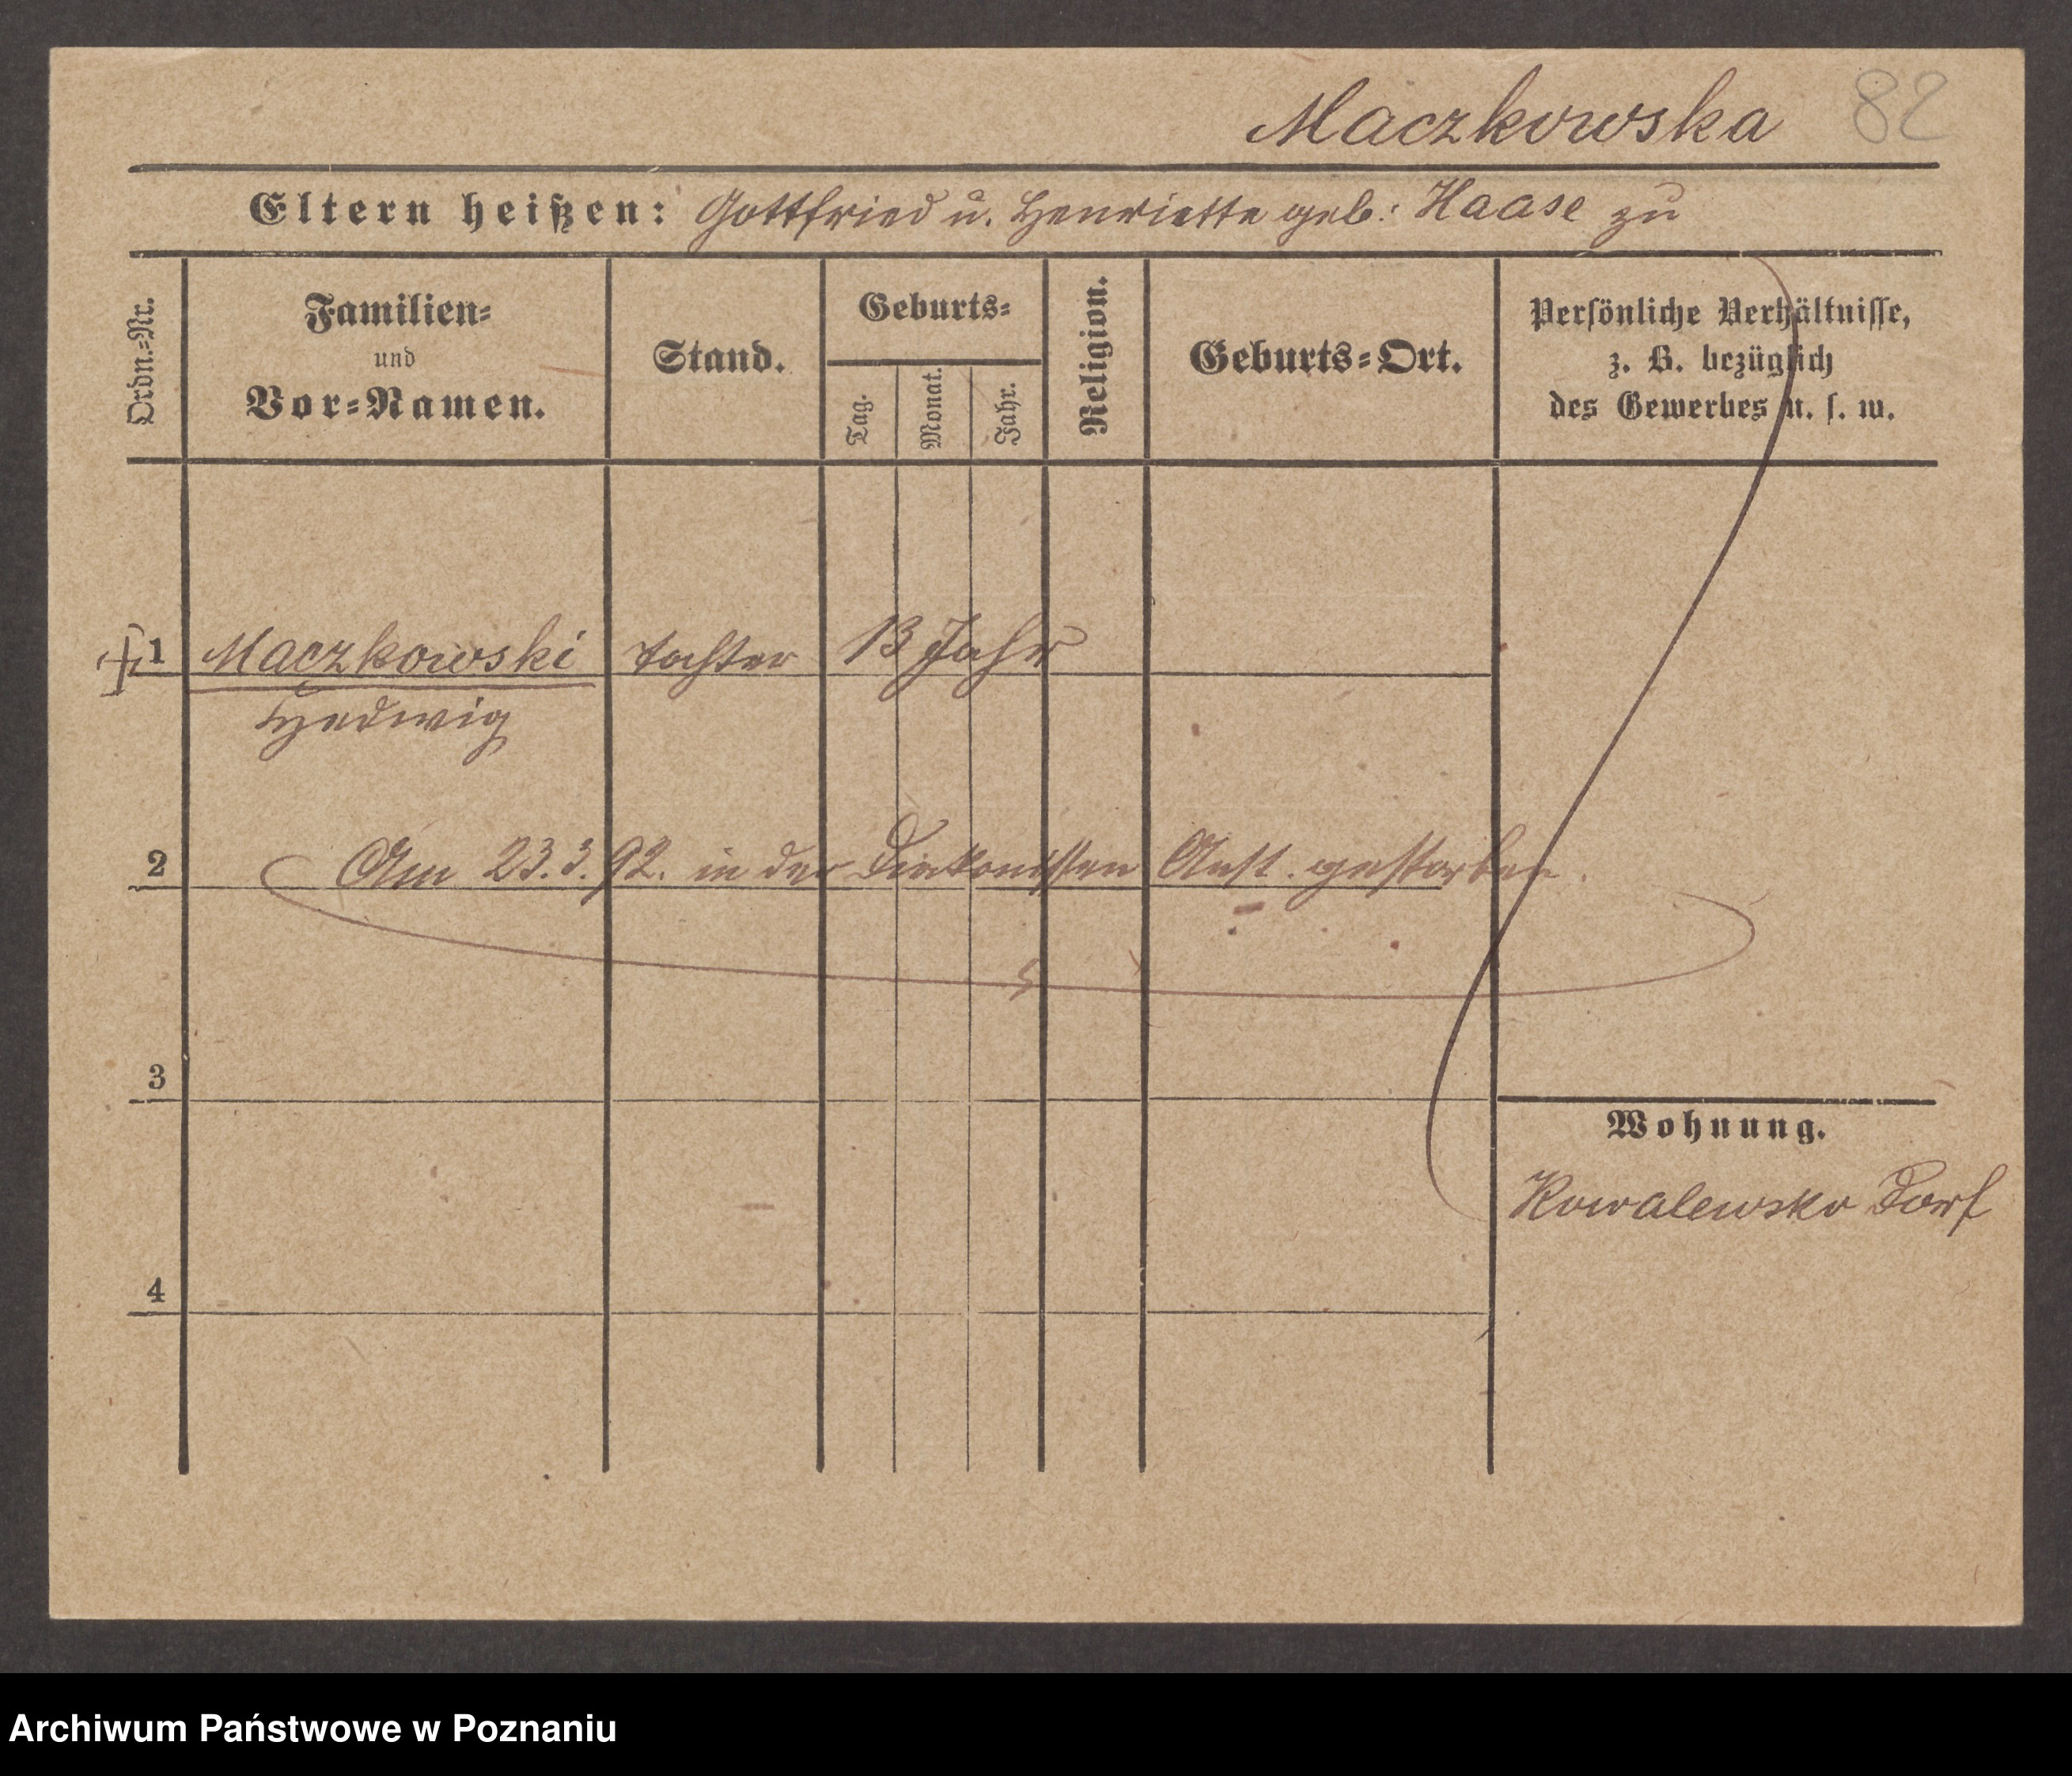 Maczkowska 82
Eltern heißen: Gottfried u. Henriette geb: Haase zu
Ordn.=Nr.
Familien=
und
Vor=Namen.
Stand.
Geburts=
Tag.
Monat.
Jahr.
Religion.
Geburts=Ort.
Persönliche Verhältnisse,
z. B. bezüglich
des Gewerbes u. s. w.
1 Maczkowski tochter 13 Jahr
Hedwig
2 Am 23.3.92. in der Diakonissen Anst. gestorben.
3
Wohnung.
Kowalewsko Dorf
4
Archiwum Państwowe w Poznaniu